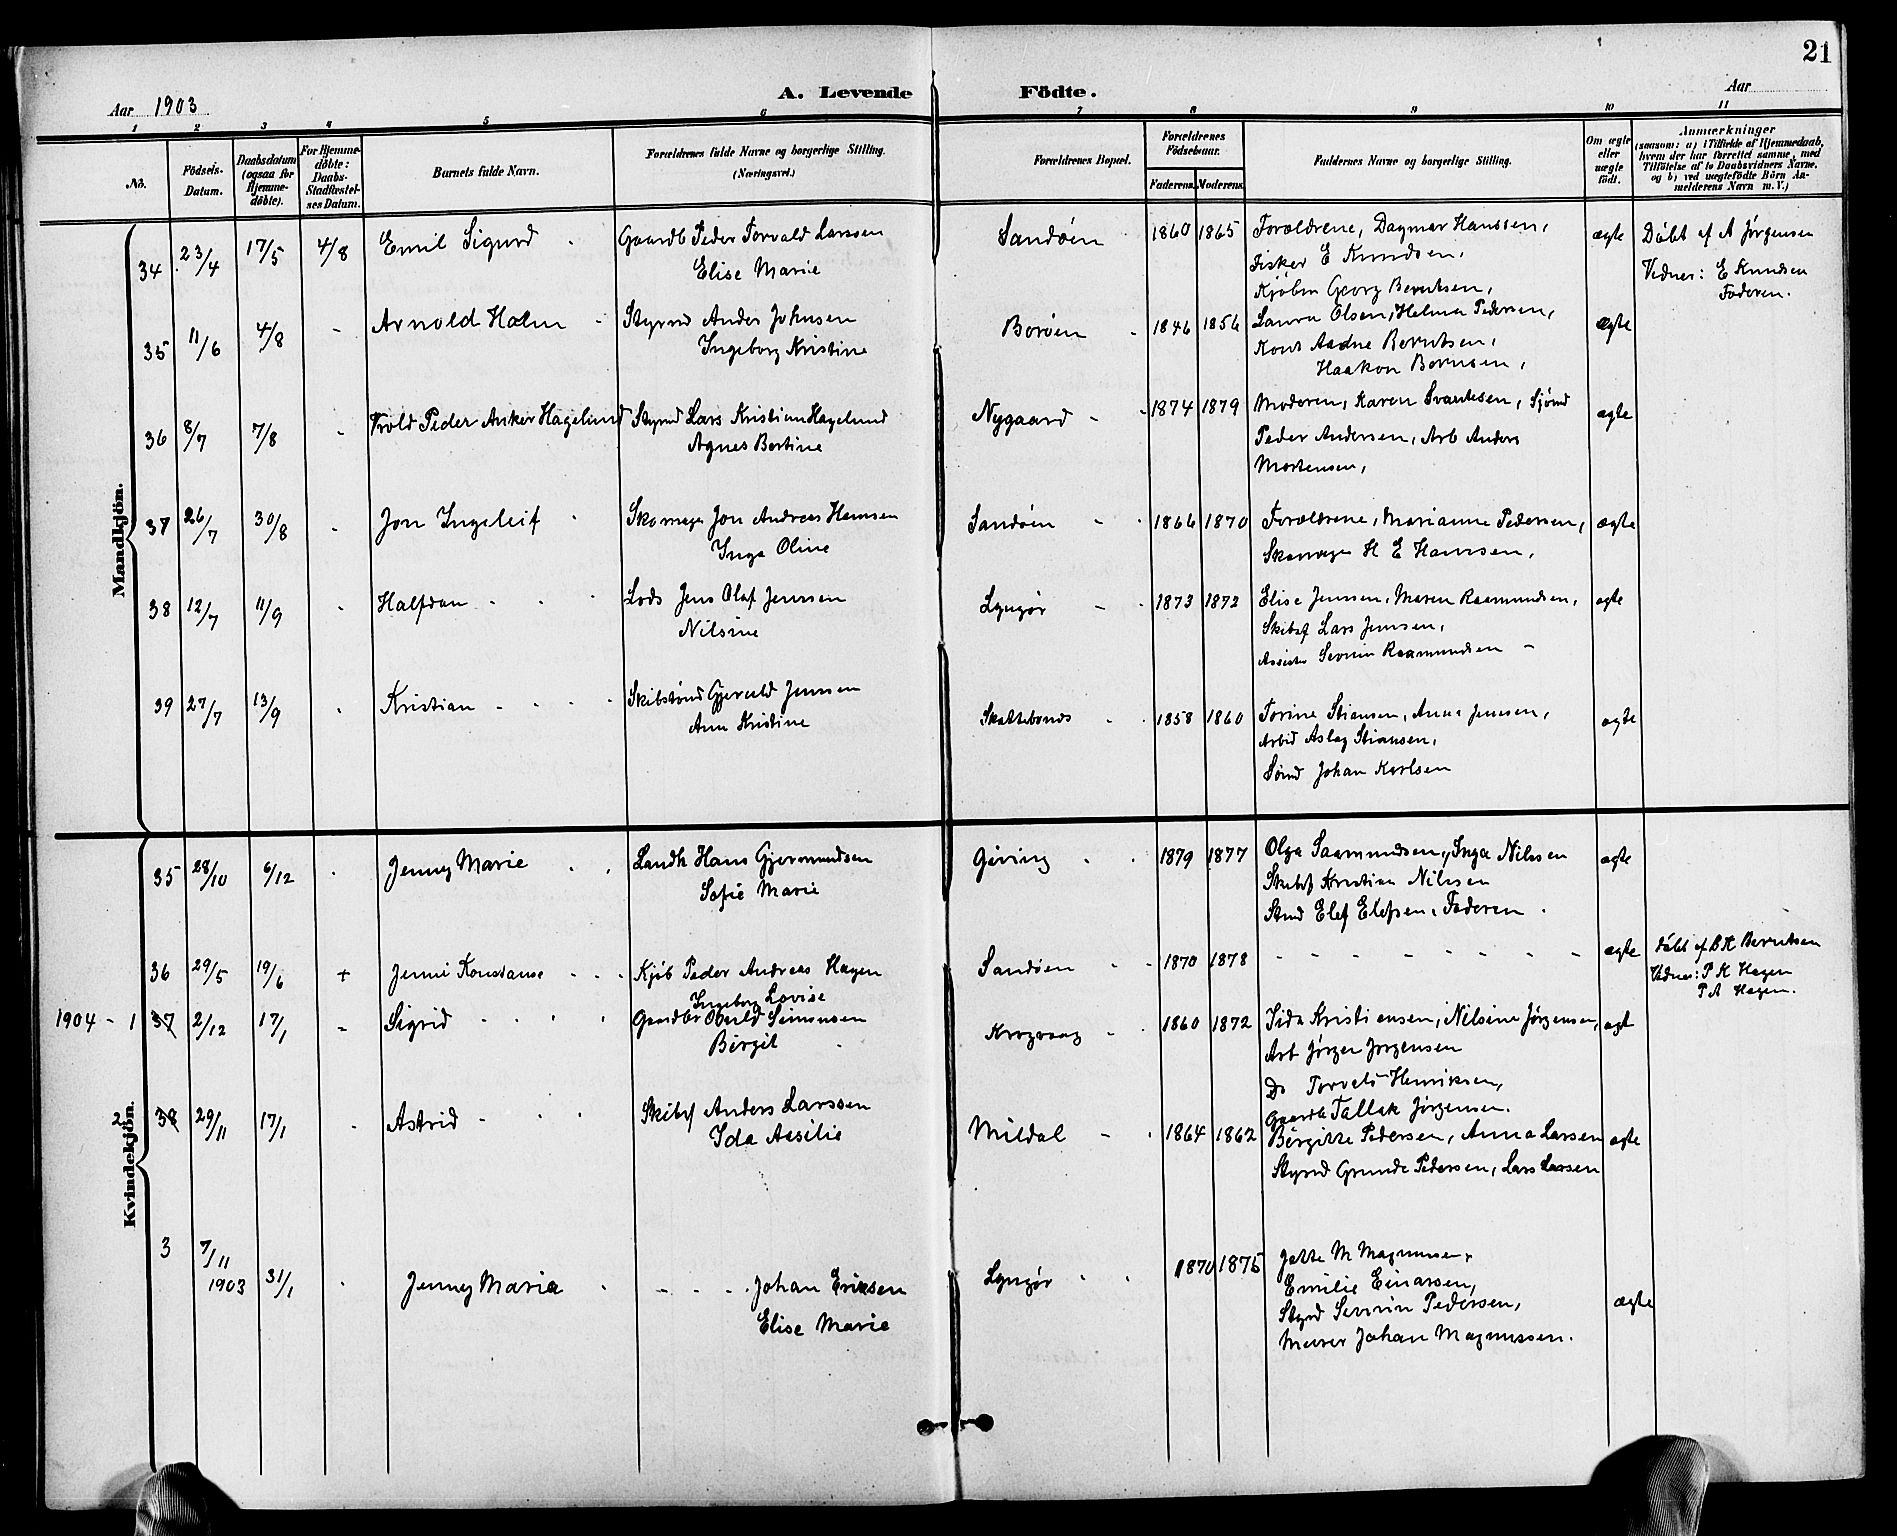 21
A. Levende Födte.
Aar 1903
Aar
1 2 3 4 5 6 7 8 9 10 11
No.
Födsels-Datum.
Daabsdatum (ogsaa for Hjemme-döbte).
For Hjemme-döbte: Daabs-Stadfæstel-ses Datum.
Barnets fulde Navn.
Forældrenes fulde Navne og borgerlige Stilling. (Næringsvei.)
Forældrenes Bopæl.
Forældrenes Födselsaar.
Faderens. Moderens.
Faddernes Navne og borgerlige Stilling.
Om ægte eller uægte födt.
Anmærkninger
(saasom: a) i Tilfælde af Hjemmedaab, hvem der har forrettet samme, med Tilföielse af to Daabsvidners Navne, og b) ved uægtefödte Börn Anmelderens Navn m. V.)
Mandkjön.
34 23/4 17/5 4/8 Emil Sigurd Gaardb Peder Torvald Larssen Sandøen 1860 1865 Forældrene, Dagmar Hanssen, ægte Döbt af A Jørgensen
Elise Marie Fisker E Knudsen, Vidner: E Knudsen
Kjøbm Georg Berntsen, Faderen.
35 11/6 4/8 - Arnold Holm Styrmd Anders Johnsen Borøen 1846 1856 Laura Olsen, Helma Pedersen, ægte
Ingeborg Kristine Aadne Berntsen,
Haakon
36 8/7 7/8 - Trold Peder Anker Hagelund Styrmd Lars Kristian Hagelund Nygaard 1874 1879 Moderen, Karen Svantesen, Sjømd ægte
Agnes Bertine Peder Andersen, Arb Anders
Mortensen,
37 26/7 30/8 - Jon Ingeleif Skomager Jon Andreas Hansen Sandøen 1866 1870 Forældrene, Marianne Pedersen, ægte
Inga Oline Skomager H E Hanssen,
38 12/7 11/9 - Halfdan Lods Jens Olaf Jenssen Lyngør 1873 1872 Elise Jenssen, Maren Raamundsen, ægte
Nilsine Skibsf Lars Jenssen,
Severin Raamundsen -
39 27/7 13/9 - Kristian Skibstømd Gjeruld Jenssen 1858 1860 Torine Stiansen, Anna Jenssen, ægte
Ann Kristine Arbid Aslag Stiansen,
Sømd Johan Karlsen
Kvindekjön.
35 28/10 6/12 - Jenny Marie Landh Hans Gjermundsen Gjeving 1879 1877 Olga Saamundsen, Inga Nilssen ægte
Sofie Marie Skibsf Kristian Nilssen
Elef Elefsen, Faderen.
36 29/5 19/6 + Jenni Konstanse Kjøb Peder Andreas Hagen Sandøen 1870 1878 - - - - - - - ægte döbt af B K Berntsen
Ingeborg Lovise Vidner: P K Hagen
P A Hagen.
1904 - 1 37 2/12 17/1 - Sigrid Gaardbr Simonsen Krogvaag 1860 1872 Kristiansen, Nilsine Jørgensen, ægt
Birgit Arb Jørgen Jørgensen
Do Henriksen,
Gaardb Tallak Jørgensen.
2 38 29/11 17/1 - Astrid Skibsf Anders Larssen Mildal 1864 1862 Birgitte Pedersen, Anna Larsen ægte
Ida Aesilie Styrmd Grunde Pedersen, Lars Larssen
3 7/11 1903 31/1 - Jenny Maria - - - Johan Eriksen Lyngør 1870 1875 Jette M Magnussen, ægte
Elise Marie Emilie Einarsen,
Styrd Severin Pedersen,
Murer Johan Magnussen.